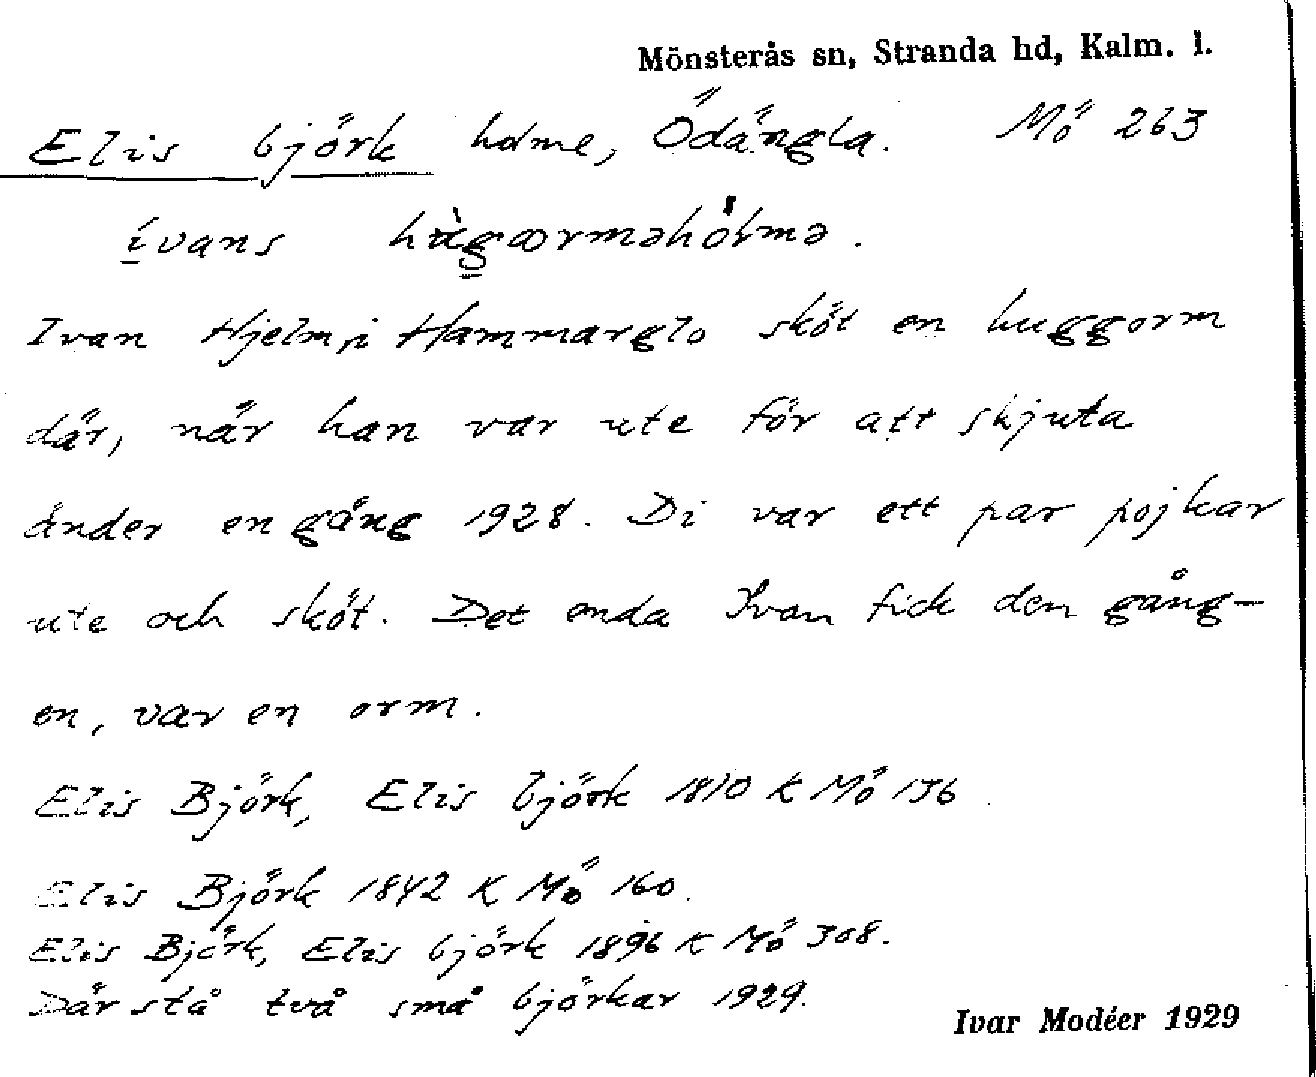 Mönsterås sn, Stranda hd, Kalm. l.
Elis björk holme, Ödängla. Mö 263
ívans hùgærməhòlmə.
Ivan Hjelm i Hammarglo sköt en huggorm
där, när han var ute för att skjuta
änder en gång 1928. Di var ett par pojkar
ute och sköt. Det enda Ivan fick den gång-
en, var en orm.
Elis Björk, Elis björk 1810 K Mö 136
Elis Björk 1842 K Mö 160.
Elis Björk, Elis björk 1896 K Mö 308.
Där stå två små björkar 1929.
Ivar Modéer 1929